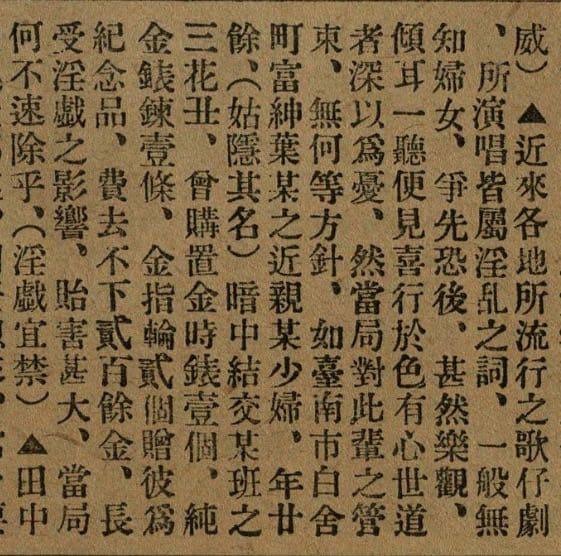 威）▲近來各地所流行之歌仔劇
、所演唱皆屬淫乱之詞、一般無
知婦女、爭先恐後、甚然樂觀、
傾耳一聽便見喜行於色有心世道
者深以爲憂、然當局對此輩之管
束、無何等方針、如臺南市白舍
町富紳葉某之近親某少婦、年廿
餘、（姑隱其名）暗中結交某班之
三花丑、曾購置金時錶壹個、純
金錶鍊壹條、金指輪貳個贈彼爲
紀念品、費去不下貳百餘金、長
受淫戲之影響、貽害甚大、當局
何不速除乎、（淫戲宜禁）▲田中